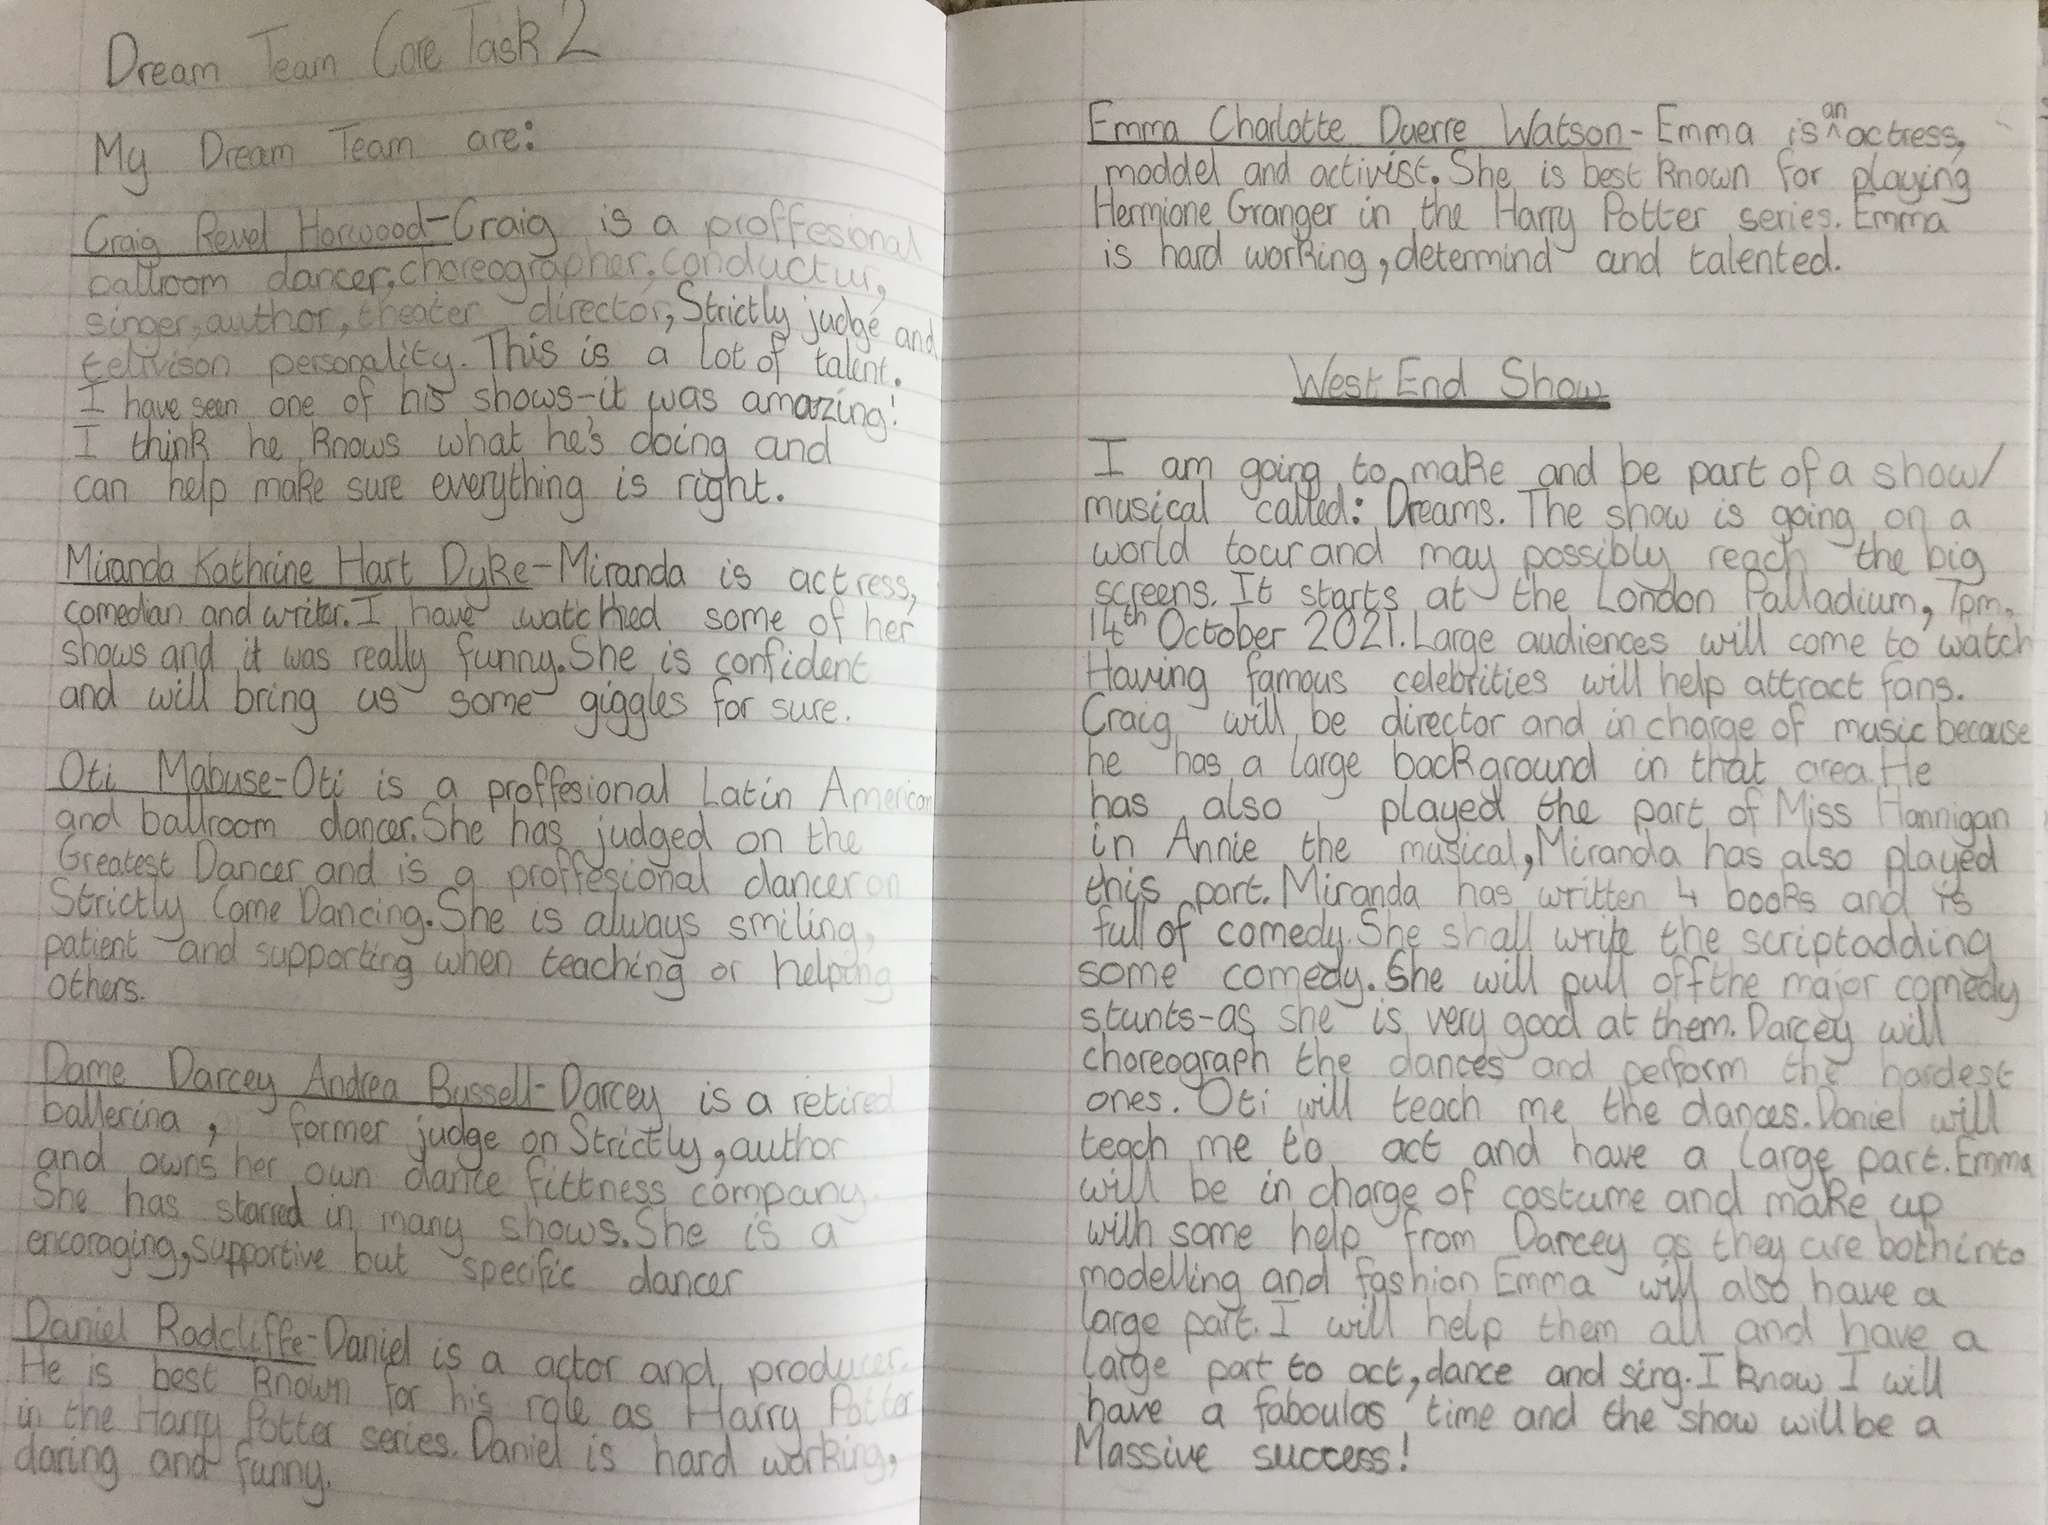 Dream Team Core Task 2
My Dream Team are:
Craig Revel Horwood-Craig is a proffesional
ballroom dancer, choreographer, conductur,
singer, author, theater director, Strictly judge and
telivison personality. This is a lot of talent.
I have seen one of his shows-it was amazing!
I think he knows what he's doing and
can help make sure everything is right.
Miranda Kathrine Hart Dyke-Miranda is actress,
comedian and writer. I have watched some of her
shows and it was really funny. She is confident
and will bring us some giggles for sure.
Oti Mabuse-Oti is a proffesional Latin American
and ballroom dancer. She has judged on the
Greatest Dancer and is a proffesional dancer on
Strictly Come Dancing. She is always smiling,
patient and supporting when teaching or helping
others.
Dame Darcey Andrea Bussell-Darcey is a retired
ballerina, former judge on Strictly, author
and owns her own dance fittness company.
She has starred in many shows. She is a
encoraging, supportive but specific dancer
Daniel Radcliffe-Daniel is a actor and producer.
He is best known for his role as Harry Potter
in the Harry Potter series. Daniel is hard working,
daring and funny.
Emma Charlotte Duerre Watson-Emma is an actress,
moddel and activist. She is best known for playing
Hermione Granger in the Harry Potter series. Emma
is hard working, determind and talented.
West End Show
I am going to make and be part of a show/
musical called: Dreams. The show is going on a
world tour and may possibly reach the big
screens. It starts at the London Palladium, 7pm,
14th October 2021. Large audiences will come to watch
Having famous celebrities will help attract fans.
Craig will be director and in charge of music because
he has a large background in that area. He
has also played the part of Miss Hannigan
in Annie the musical, Miranda has also played
this part. Miranda has written 4 books and is
full of comedy. She shall write the script adding
some comedy. She will pull off the major comedy
stunts-as she is very good at them. Darcey will
choreograph the dances and perform the hardest
ones. Oti will teach me the dances. Daniel will
teach me to act and have a large part. Emma
will be in charge of costume and make up
with some help from Darcey as they are both into
modelling and fashion Emma will also have a
large part. I will help them all and have a
large part to act, dance and sing. I know I will
have a faboulas time and the show will be a
Massive success!